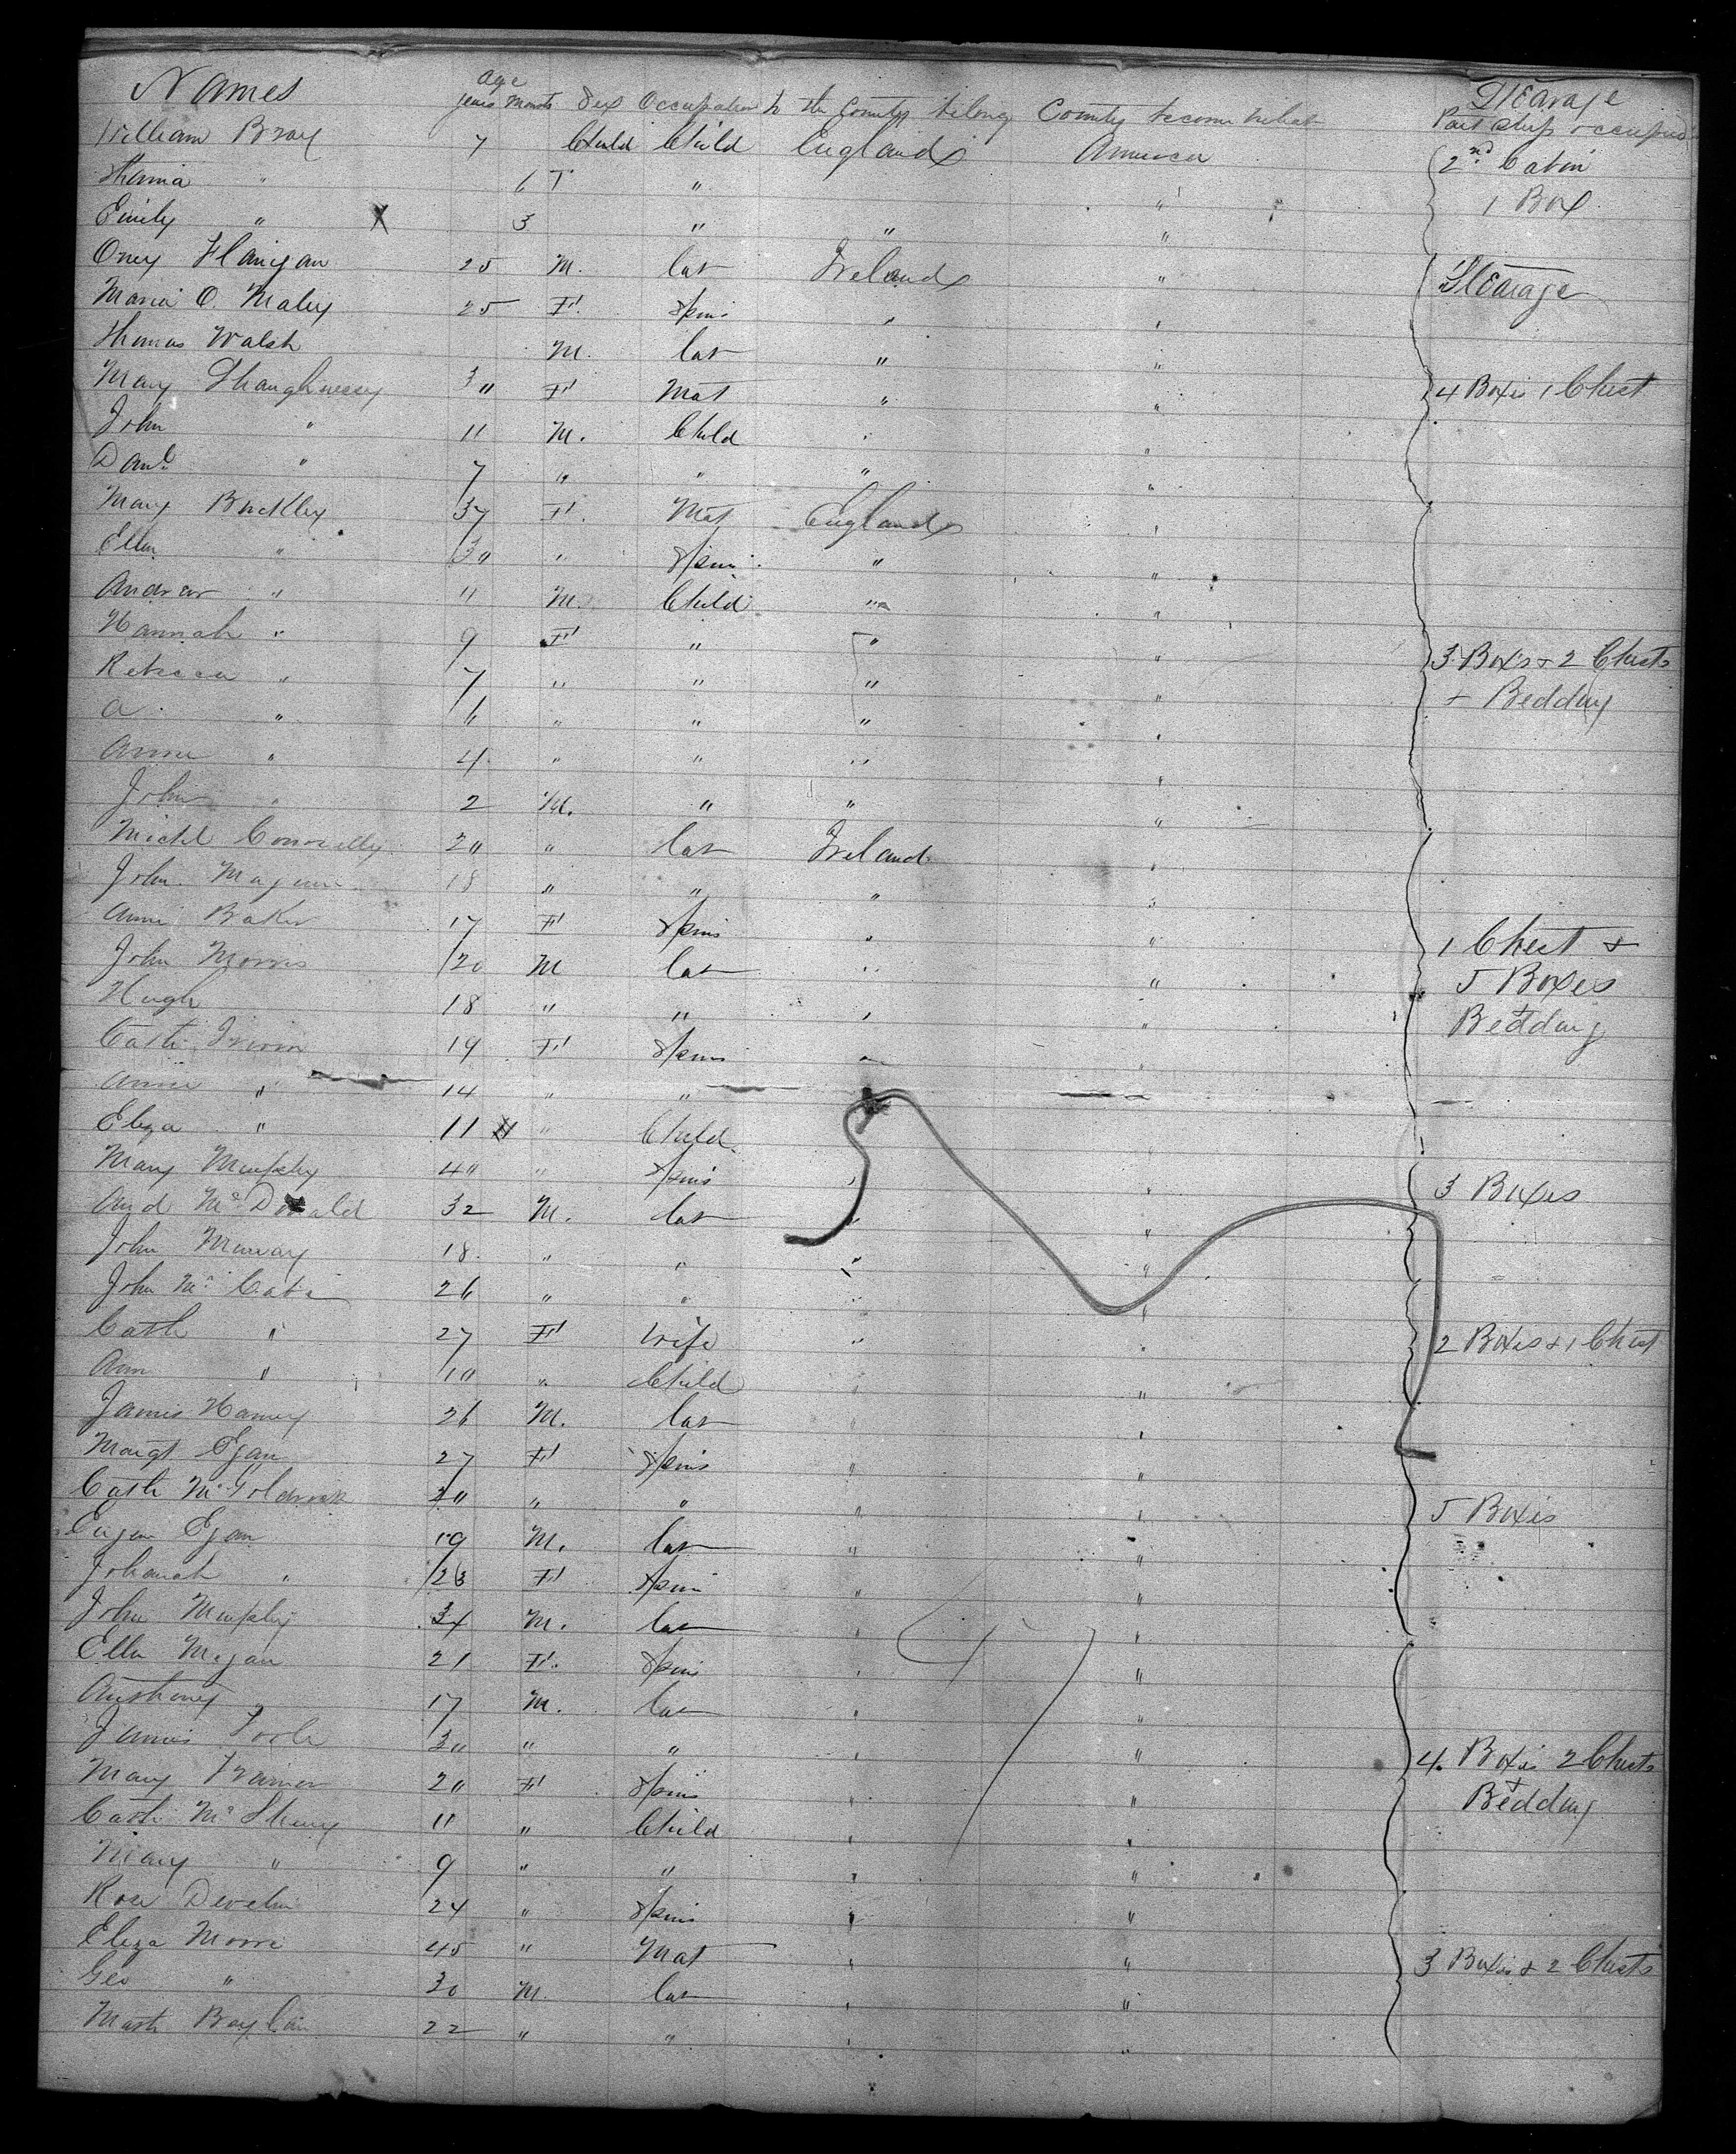 Names Age years Months Sex Occupation to the Country belong Country become inhabt Stearage Part ship occupied
William Bray 7 Child Child England America 2nd Cabin
" 6 " " 1 Box
Emily " 3 " " "
Oney Flanigan 25 M. Lab Ireland " Stearage
Maria O. Maley 25 F. Spins " "
Thomas Walsh M. Lab " "
Mary Shaughnessy 3" F Mat " " 4 Boxes 1 Chest
John " 11 M. Child " "
Danl " 7 " " " "
Mary Buckley 37 F. Mat England "
Ellen " 3" " Spins " "
Andrew " 11 M. Child " "
Hannah " 9 F " " " 3 Boxs + 2 Chests
Rebecca " 7 " " " " + Bedding
a " 6 " " " "
Annie " 4 " " " "
John " 2 M. " " "
Michl Connelly 2" " Lab Ireland "
John 18 " " " "
Anne Baker 17 F Spins " " 1 Chest +
John Morris 20 M Lab " " 5 Boxes
Hugh 18 " " " " + Bedding
Cath Irwin 19 F Spins " "
Annie " 14 " "
Eliza " 11 " Child "
Mary Murphy 4" " Spins " " 3 Boxes
Mc Donald 32 M. Lab " "
John Murray 18 " " " "
John Mc Cabe 26 " " " "
Cath " 27 F Wife " " 2 Boxes + 1 Chest
Ann " 10 " Child " "
James Harvey 26 M. Lab " "
Margt Egan 27 F Spins " "
Cath McGoldrick 2" " " " " 5 Boxes
Eugene Egan 19 M. Lab " "
Johanah " 23 F Spins " "
John Murphy 34 M. Lab " "
Ellen Megan 21 F. Spins " "
Anthony " 17 M. Lab " "
James Toole 3" " " " " 4. Boxes 2 Chests
Mary Trainor 2" F Spins " " + Bedding
Cath Mc Sherry 11 " Child " "
Mary " 9 " " " "
Rose Develin 24 " Spins " "
Eliza Moore 45 " Mat " " 3 Boxes + 2 Chests
Geo " 30 M. Lab " "
Boylan 22 " " " "